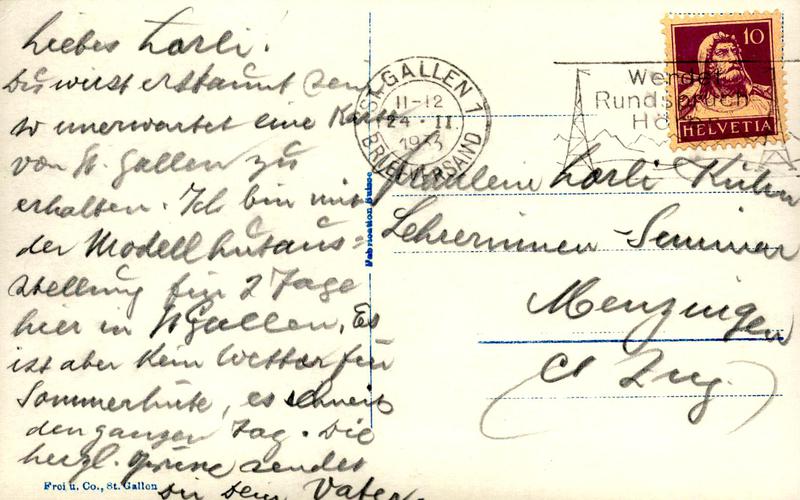 Liebes Lorli!
Du wirst erstaunt sein
so unerwartet eine Karte
von St. Gallen zu
erhalten. Ich bin mit
der Modellhutaus=
stellung für 2 Tage
hier in St Gallen. Es
ist aber kein Wetter für
Sommerhüte, es schneit
den ganzen Tag. Die
herzl. Grüsse sendet
Dir Dein Vater
Frei u. Co., St. Gallen
Fabrication Suisse
ST. GALLEN 1
11-12
24. II.
1933
BRIEFVERSAND
Werdet
Rundspruch
Hö
10
HELVETIA
Fräulein Lorli Kühn
Lehrerinnen-Seminar
Menzingen
(Ct Zug.)